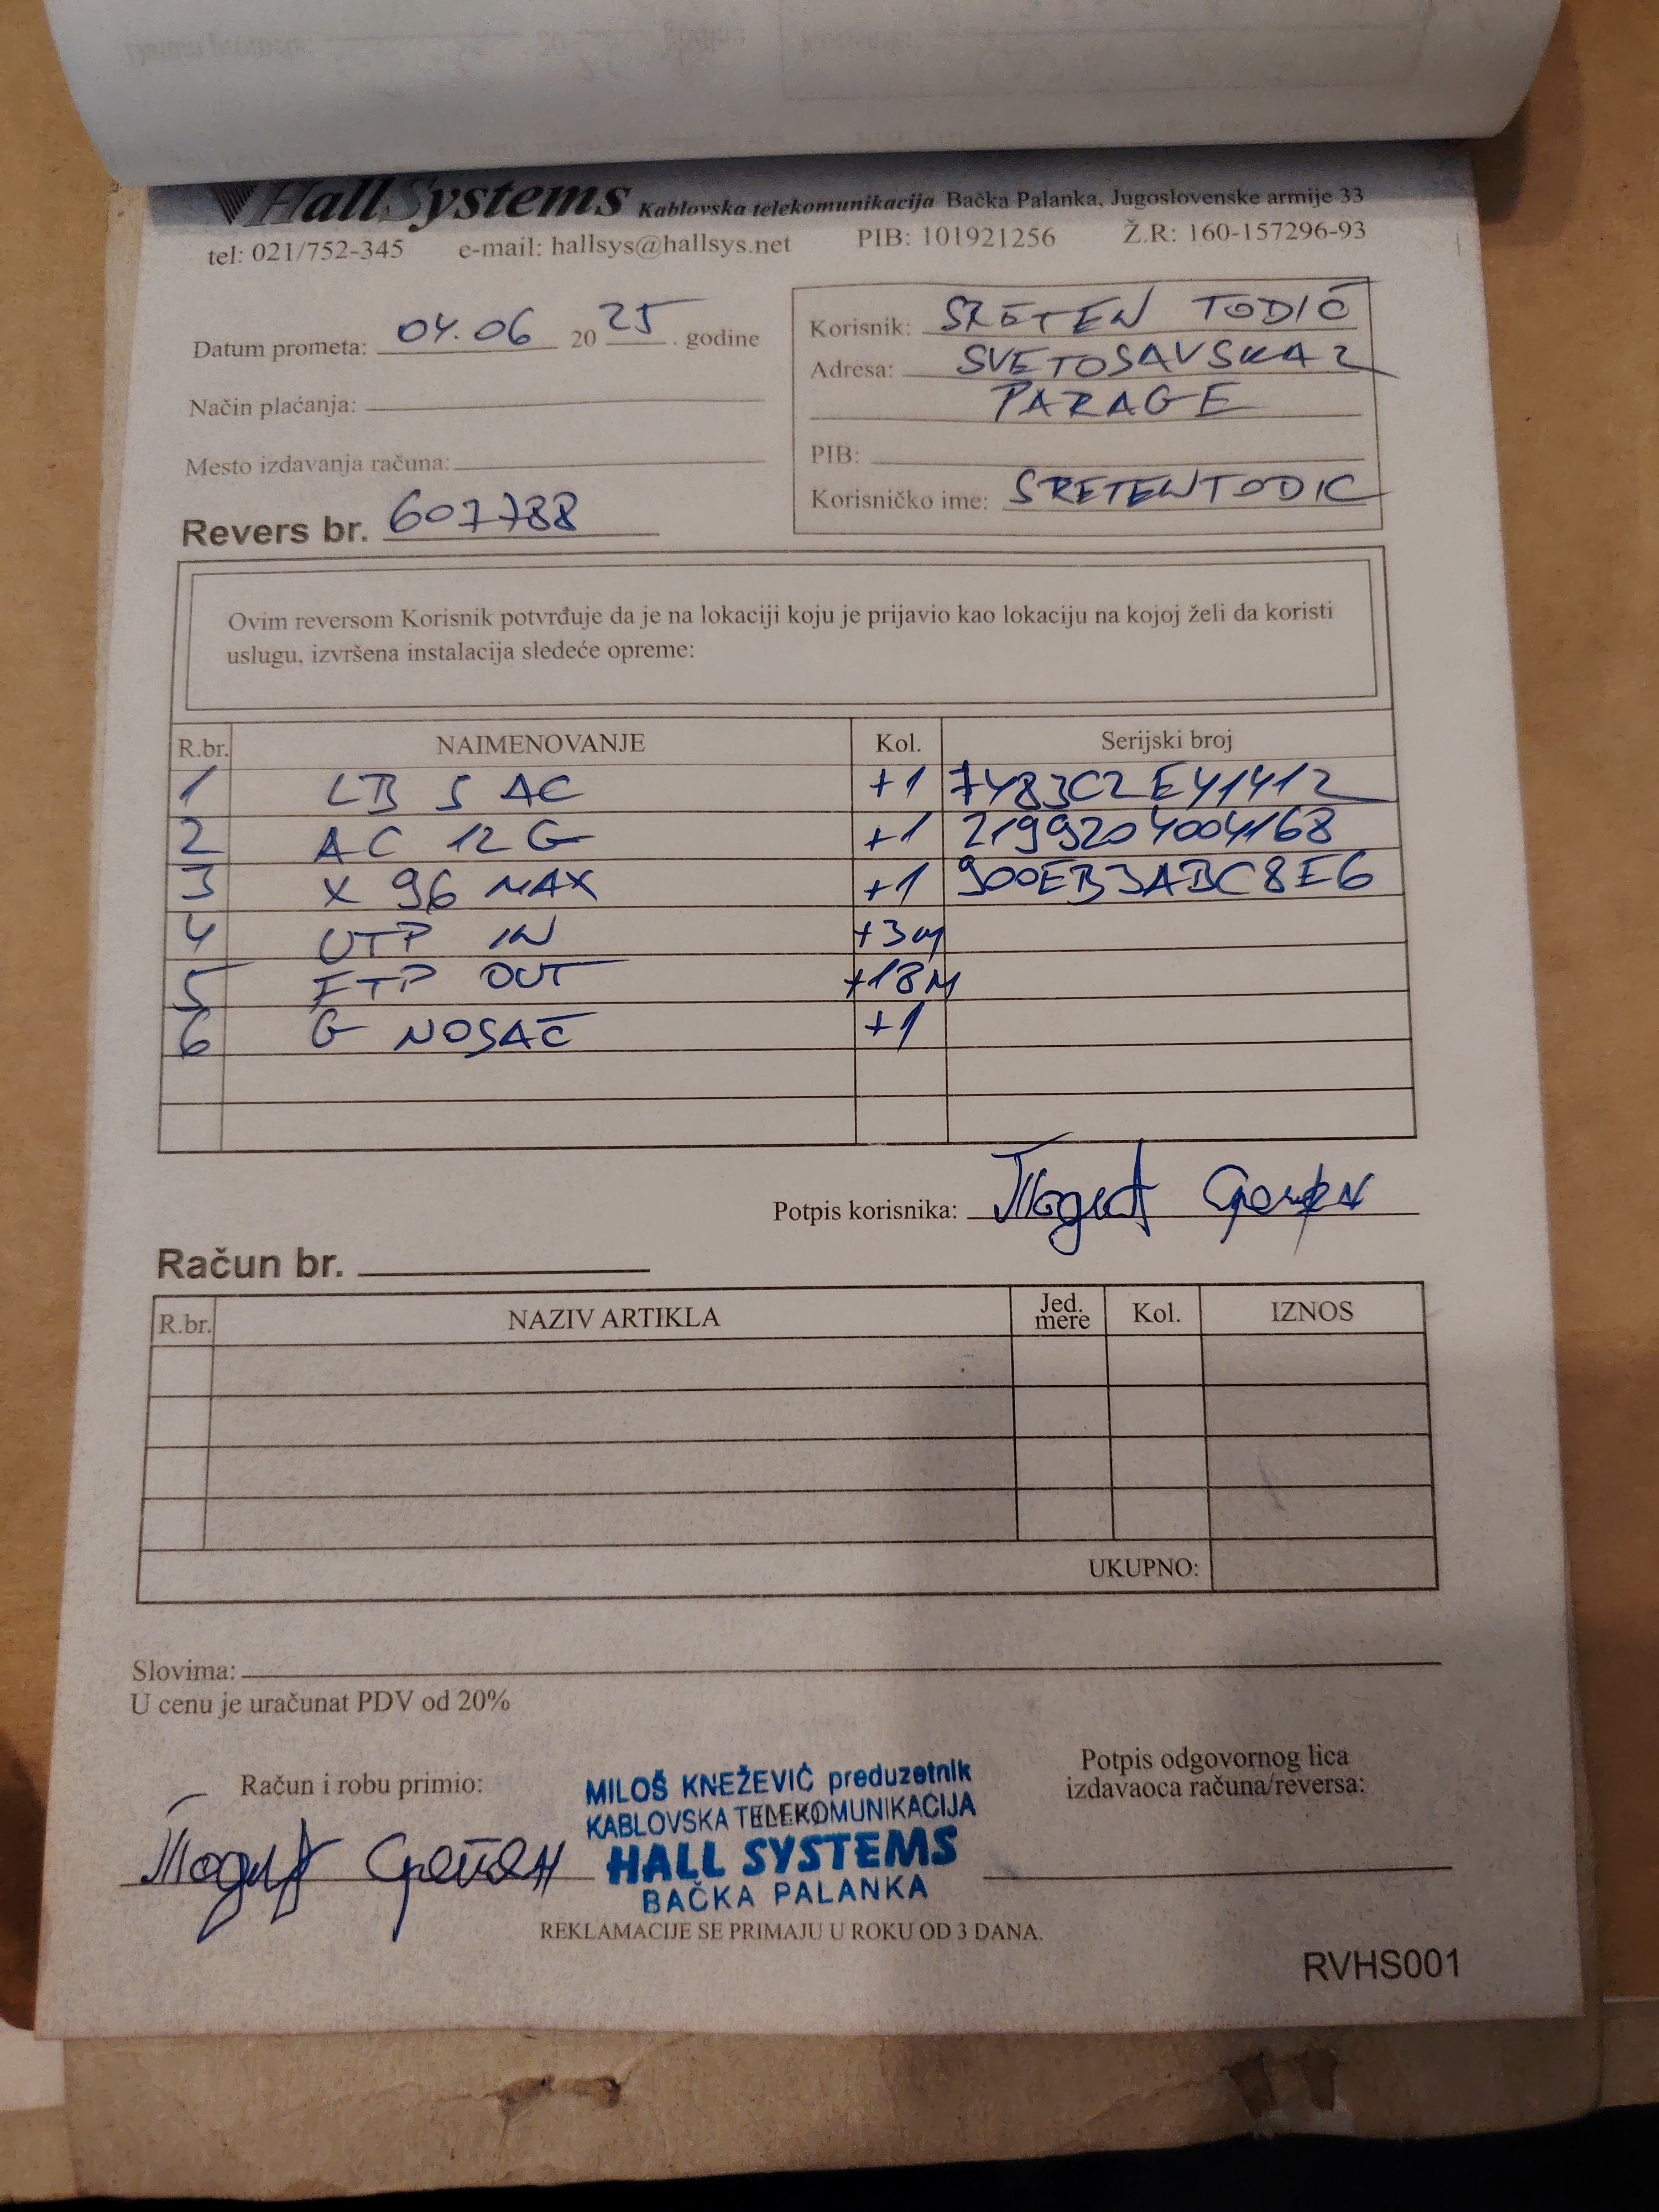 HallSystems Kablovska telekomunikacija Bačka Palanka, Jugoslovenske armije 33
tel: 021/752-345 e-mail: hallsys@hallsys.net PIB: 101921256 Ž.R: 160-157296-93
Datum prometa: 04.06 2025. godine
Način plaćanja:
Mesto izdavanja računa:
Revers br. 607788
Korisnik: SRETEN TODIĆ
Adresa: SVETOSAVSKA 2
PARAGE
PIB:
Korisničko ime: SRETENTODIC
Ovim reversom Korisnik potvrđuje da je na lokaciji koju je prijavio kao lokaciju na kojoj želi da koristi
uslugu, izvršena instalacija sledeće opreme:
R.br. NAIMENOVANJE Kol. Serijski broj
1 LB 5 AC +1 7483C2E41412
2 AC 12 G +1 2199204004168
3 X 96 MAX +1 900EB3ABC8E6
4 UTP IN +3m
5 FTP OUT +18M
6 G NOSAČ +1
Potpis korisnika: Тодић Сретен
Račun br.
R.br. NAZIV ARTIKLA Jed. mere Kol. IZNOS
UKUPNO:
Slovima:
U cenu je uračunat PDV od 20%
Račun i robu primio:
Тодић Сретен
MILOŠ KNEŽEVIĆ preduzetnik
KABLOVSKA TELEKOMUNIKACIJA
HALL SYSTEMS
BAČKA PALANKA
Potpis odgovornog lica
izdavaoca računa/reversa:
REKLAMACIJE SE PRIMAJU U ROKU OD 3 DANA.
RVHS001